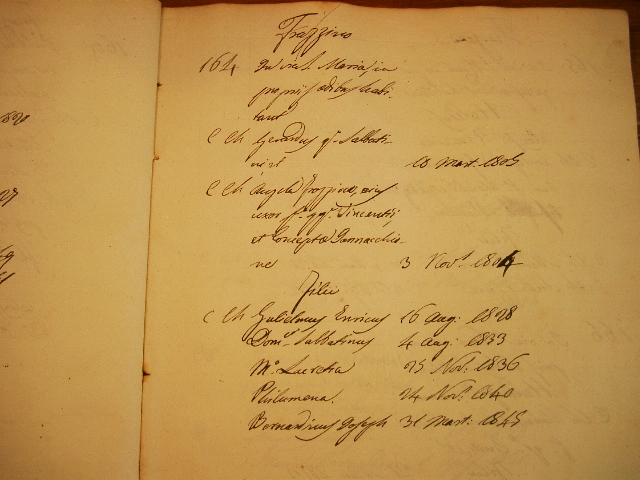 Frazzino
164 In via S. Mariæ in
propriis ædibus habi-
tant
C Ch Gerardus q.m Sabbati-
10 Mart. 1805
C Ch Angela Frazzino, eius
uxor f. qq. Vincentii
et Conceptæ Iannacchio-
ne 3 Nov. 1804
Filii
C Ch Gulielmus Enricus 16 Aug: 1828
Dom. Sabbatinus 4 Aug: 1833
M.a Lucretia 25 Nov: 1836
Philumena. 24 Nov: 1840
Bernardinus Joseph 31 Mart: 1845
1820